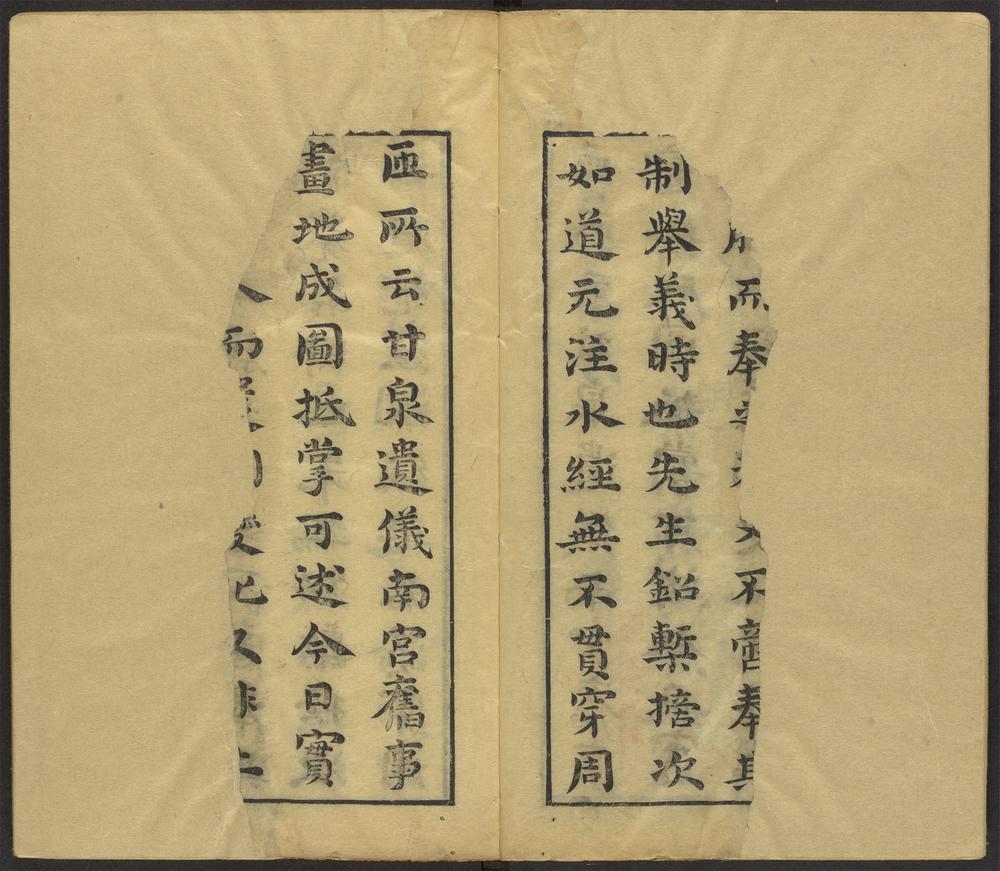 奉不啻奉其
制舉義時也先生鉛槧次
如道元注水經無不貫穿周
匝所云甘泉遺儀南宮舊事
畫地成圖抵掌可述今日實
而已又非上